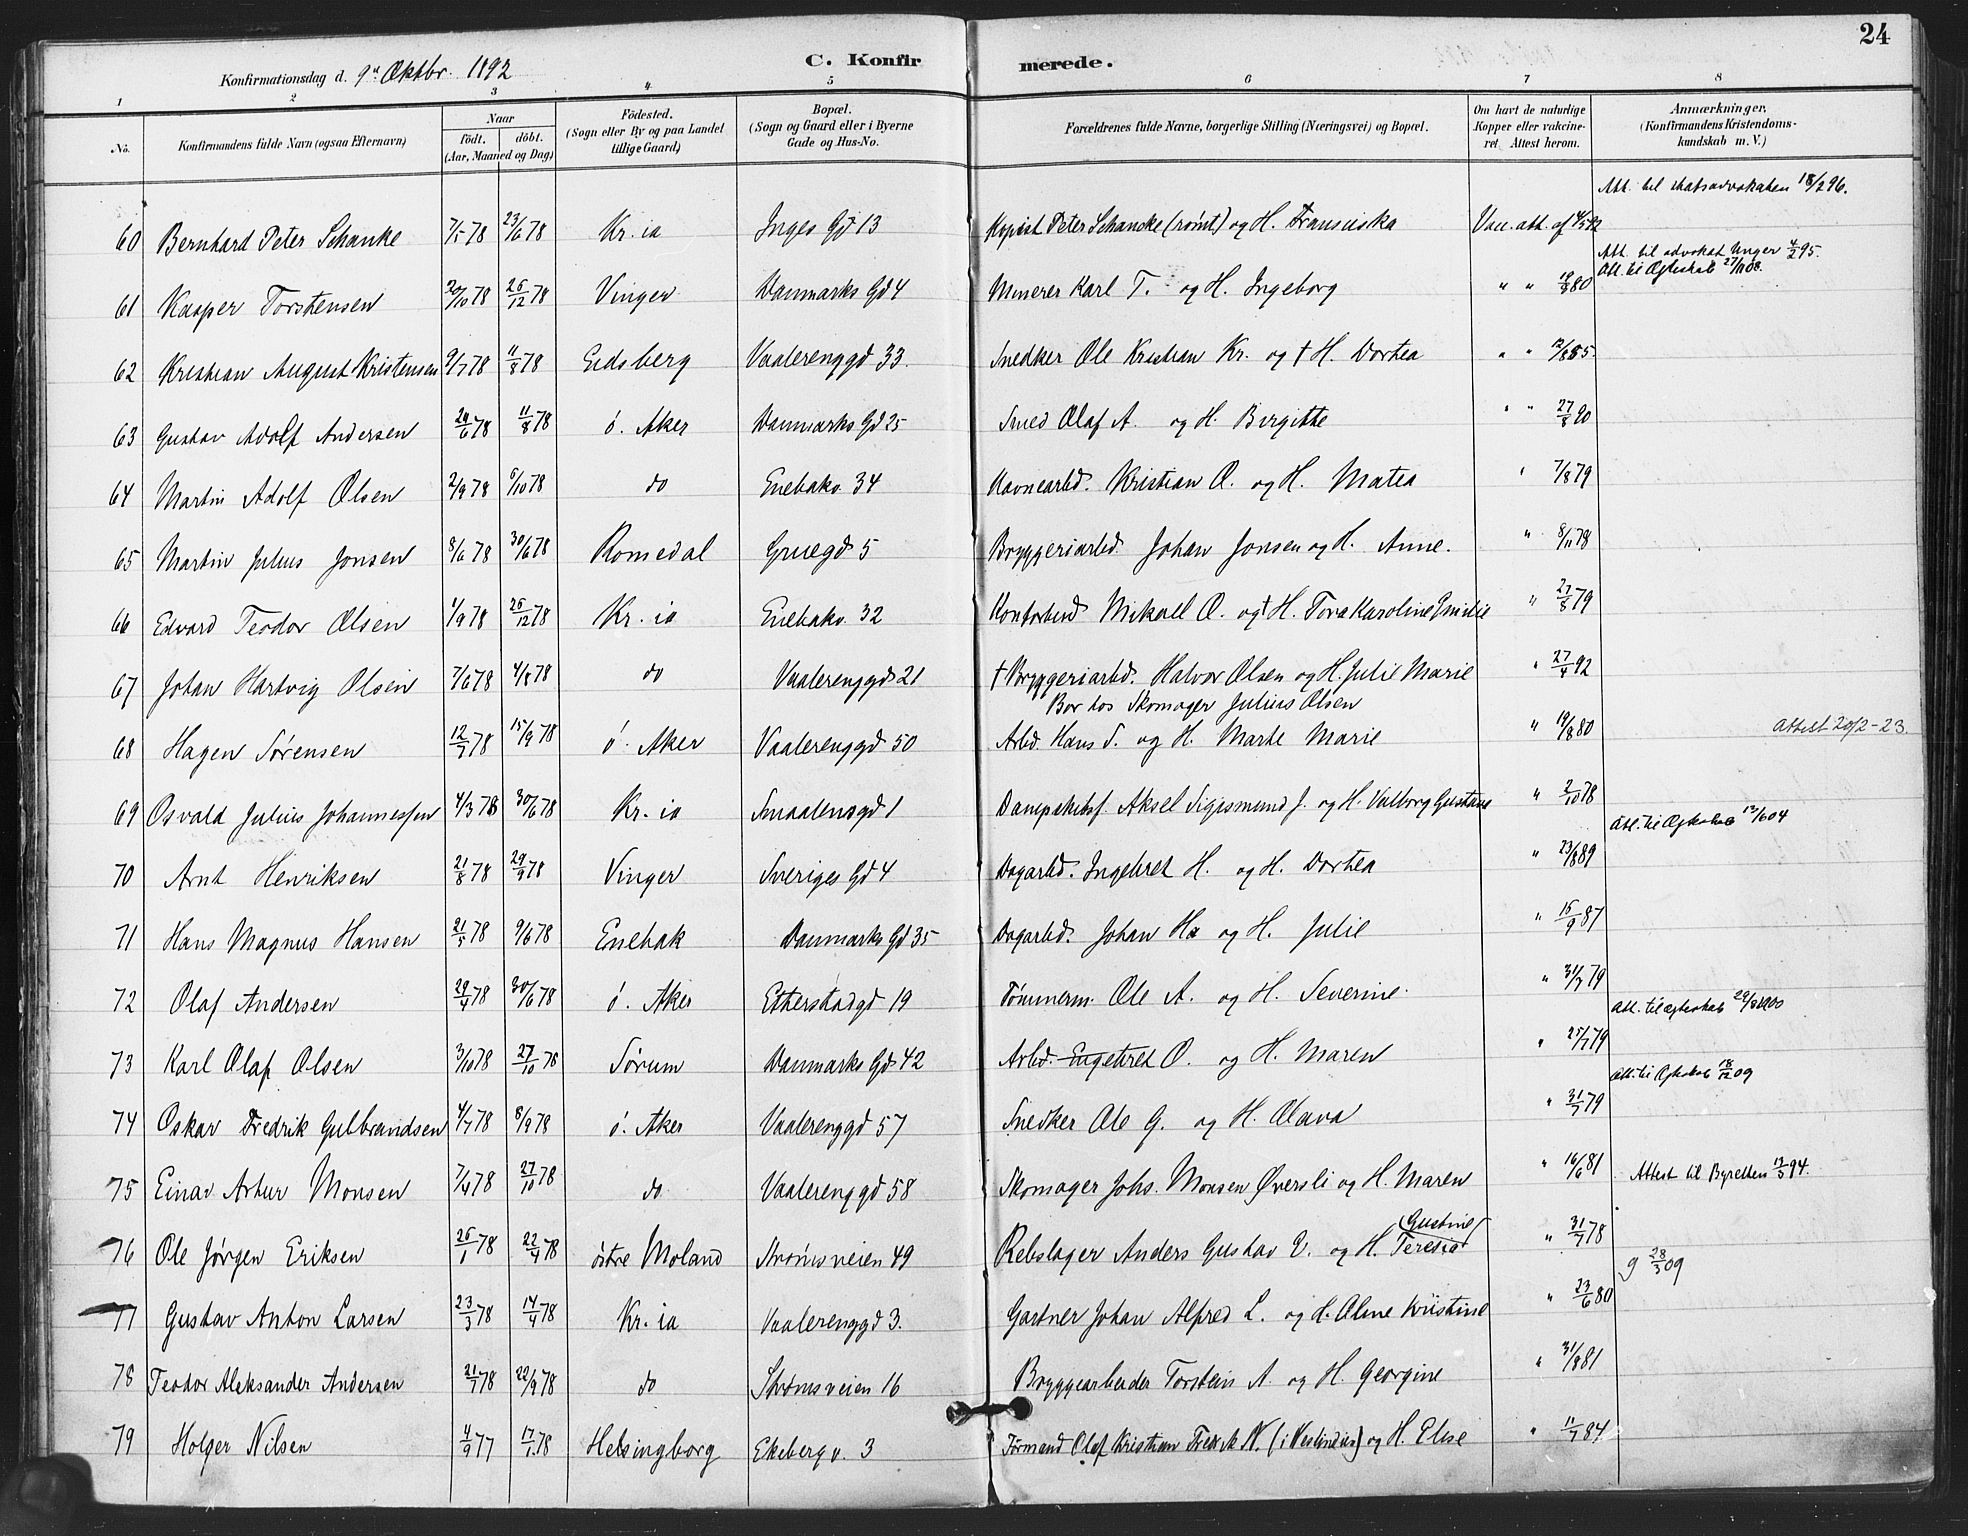 24
Konfirmationsdag d. 9de Oktbr. 1892
C. Konfirmerede.
1 2 3 4 5 6 7 8
No. Konfirmandens fulde Navn (ogsaa Efternavn) Naar født. døbt. (Aar, Maaned og Dag) Fødested. (Sogn eller By og paa Landet tillige Gaard) Bopæl. (Sogn og Gaard eller i Byerne Gade og Hus-No. Forældrenes fulde Navne, borgerlige Stilling (Næringsvei) og Bopæl. Om havt de naturlige Kopper eller vakcineret. Attest herom. Anmærkninger. (Konfirmandens Kristendomskundskab m. V.)
Att. til statsadvokaten 18/2 96.
60 Bernhard Peter Schanke 7/5 78 23/6 78 Kr.ia Inges Gd 13 Kopist Peter Schancke (rømt) og H. Fransiska Vacc. att. af
Att. til advokat Unger 4/2 95.
Att. til Ægteskab 27/11 08.
61 Kasper Torstensen 20/10 78 26/12 78 Vinger Danmarks Gd 4 Minerer Karl T. og H. Ingeborg " " 18/8 80
62 Kristian August Kristensen 9/7 78 11/8 78 Eidsberg Vaalerenggd 33. Snedker Ole Kristian Kr. og † H. Dortea " " 12/8 85
63 Gustav Adolf Andersen 24/6 78 11/8 78 ö. Aker Danmarks Gd 35 Smed Olaf A. og H. Birgitte " " 27/8 90
64 Martin Adolf Olsen 2/9 78 6/10 78 do Enebakv 34 Havnearbd. Kristian O. og H. Matea " 7/8 79
65 Martin Julius Jonsen 8/6 78 30/6 78 Romedal Gruegd 5 Bryggeriarbd. Johan Jonsen og H. Anne. " 8/11 78
66 Edvard Teodor Olsen 1/9 78 26/12 78 Kr.ia Enebakv. 32 Kontorbud Mikael O. og † H. Tora Karoline Emilie " 27/8 79
67 Johan Hartvig Olsen 7/6 78 4/8 78 do Vaalerenggd 21 † Bryggeriarbd. Halvor Olsen og H. Julie Marie " 27/4 92
Bor hos Skomager Julius Olsen
68 Hagen Sørensen 12/7 78 15/9 78 ö. Aker Vaalerenggd 50 Arbd. Hans S. og H. Marte Marie " 19/8 80 Attest 20/2-23.
69 Osvald Julius Johannessen 4/3 78 30/6 78 Kr.ia Smaalensgd 1 Aksel Sigismund J. og H. Valborg Gustava " 2/10 78
Att. til Ægteskab 12/6 04
70 Arnt Henriksen 21/8 78 29/9 78 Vinger Sveriges Gd 4 Dagarbd. Ingebret H. og H. Dortea " 23/8 89
71 Hans Magnus Hansen 21/5 78 9/6 78 Enebak Danmarks Gd 35 Dagarbd. Johan Ha og H. Julie " 15/9 87
72 Olaf Andersen 29/4 78 30/6 78 ö. Aker Etterstadgd 19 Tømmerm. Ole A. og H. Severine. " 31/7 79
Att. til Ægteskab
73 Karl Olaf Olsen 3/10 78 27/10 78 Sørum Danmarks Gd 42 Arbd. Engebret O. og H. Maren " 25/7 79
Att. til Ægteskab 18/12 09
74 Oskar Fredrik Gulbrandsen 4/7 78 8/9 78 ö. Aker Vaalerenggd 57 Snedker Ole G. og H. Olava " 31/7 79
75 Einar Artur Monsen 7/4 78 27/10 78 do Vaalerenggd 58 Skomager Johs. Monsen Øversli og H. Maren " 16/6 81 Attest til Byretten 13/3 94.
76 Ole Jørgen Eriksen 26/1 78 22/4 78 östre Moland Strømsveien 49 Rebslager Anders Gustav E. og H. Teresia (Gustine) " 31/7 78
g 28/3 09
77 Gustav Anton Larsen 23/3 78 14/4 78 Kr.ia Vaalerenggd 3. Gartner Johan Alfred L. og H. Oline Kristine " 23/6 80
78 Teodor Aleksander Andersen 21/7 78 22/9 78 do Strømsveien 16 Bryggearbeider Torstein A. og H. Georgine " 31/8 81
79 Holger Nilsen 4/9 77 17/1 78 Helsingborg Ekeberg v. 3 Formand Olaf Kristian Fredrik N. (i Vestindien) og H. Elise " 11/7 84